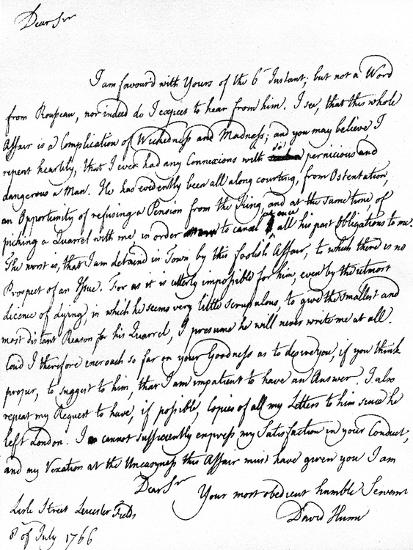 Dear Sir
I am favour'd with Yours of the 6th Instant; but not a Word
from Rousseau, nor indeed do I expect to hear from him. I see, that this whole
Affair is a Complication of Wickedness and Madness; and you may believe I
repent heartily, that I ever had any Connexions with so pernicious and
dangerous a Man. He had evidently been all along courting, from Ostentation,
an Opportunity of refusing a Pension from the King, and at the same time of
picking a Quarrel with me, in order to cancel at once all his past Obligations to me.
The worst is, that I am detained in Town by this foolish Affair, to which there is no
Prospect of an Issue. For as it is utterly impossible for him, even by the utmost
Licence of Lying, in which he seems very little scrupulous, to give the smallest and
most distant Reason for his Quarrel, I presume he will never write me at all
Coud I therefore encroach so far on your Goodness as to desire you, if you think
proper, to suggest to him, that I am impatient to have an Answer. I also
repeat my Request to have, if possible, Copies of all my Letters to him since he
left London. I cannot sufficiently express my Satisfaction in your Conduct,
and my Vexation at the Uneasyness this Affair must have given you I am
Dear Sir
Your most obedient humble Servant
Lisle Street Leicester Fields
David Hume
8th of July 1766